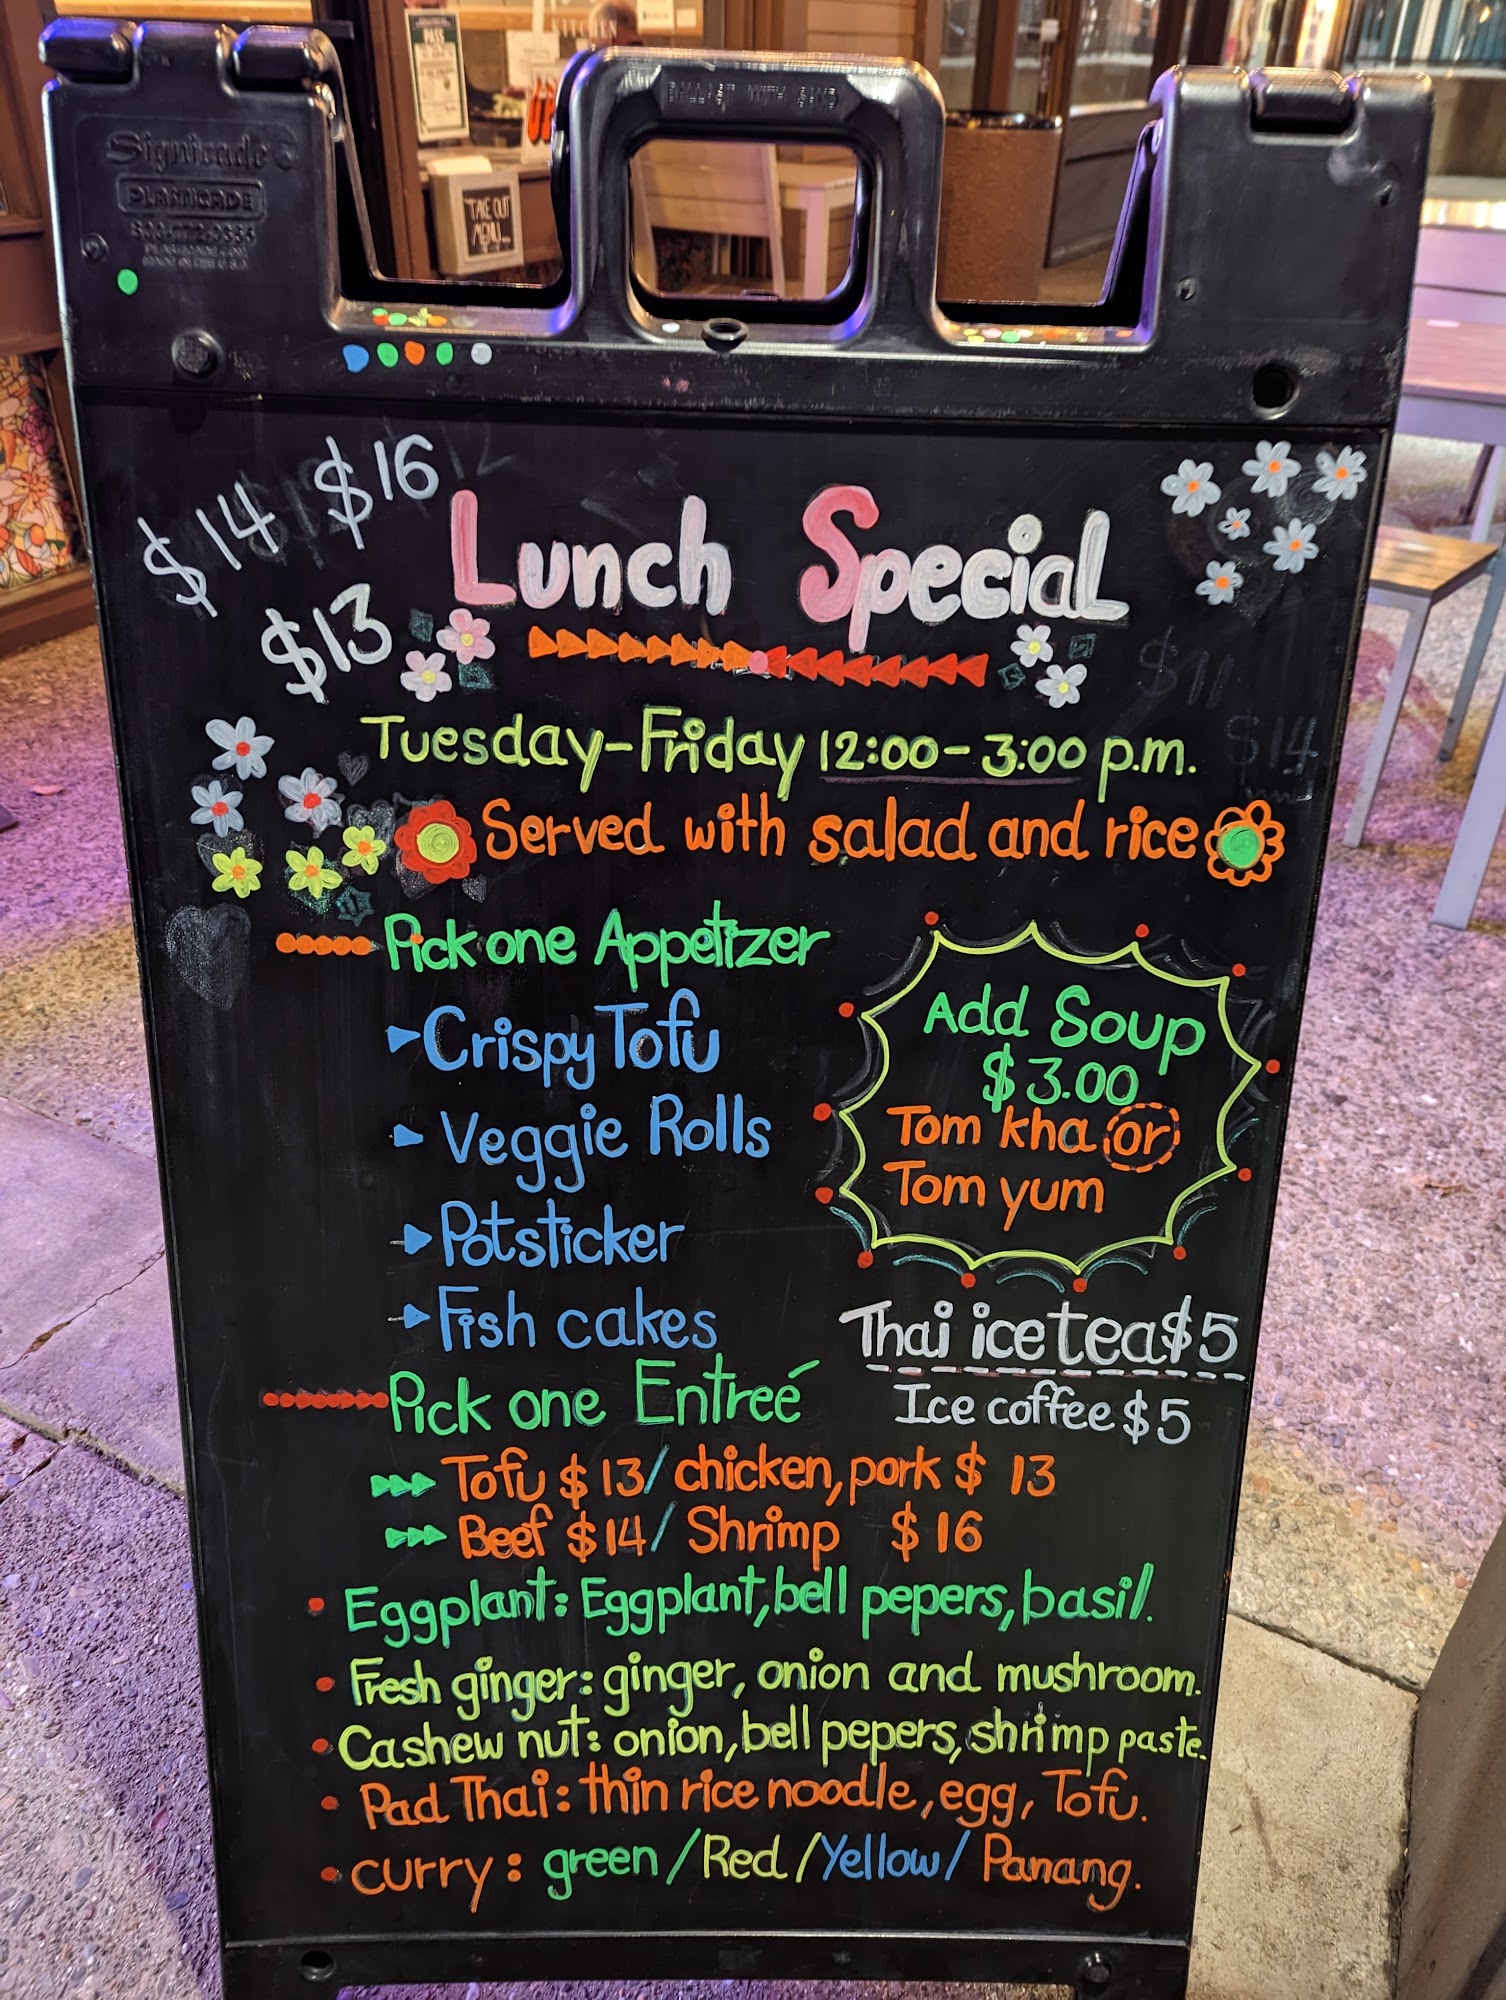 KITCHEN
PASS
Signicade
PLASTICADE
MADE IN THE U.S.A.
TAKE OUT
MENU...
$14
$16
12
$13
Lunch Special
$11
$14
Tuesday-Friday 12:00-3:00 p.m.
Served with salad and rice
Pick one Appetizer
Crispy Tofu
Veggie Rolls
Potsticker
Fish cakes
Add Soup
$3.00
Tom kha or
Tom yum
Thai ice tea $5
Ice coffee $5
Pick one Entreé
Tofu $13/ chicken, pork $ 13
Beef $14/ Shrimp $16
• Eggplant: Eggplant, bell pepers, basil.
• Fresh ginger: ginger, onion and mushroom.
• Cashew nut: onion, bell pepers, shrimp paste.
• Pad Thai: thin rice noodle, egg, Tofu.
• curry: green/Red/Yellow/Panang.